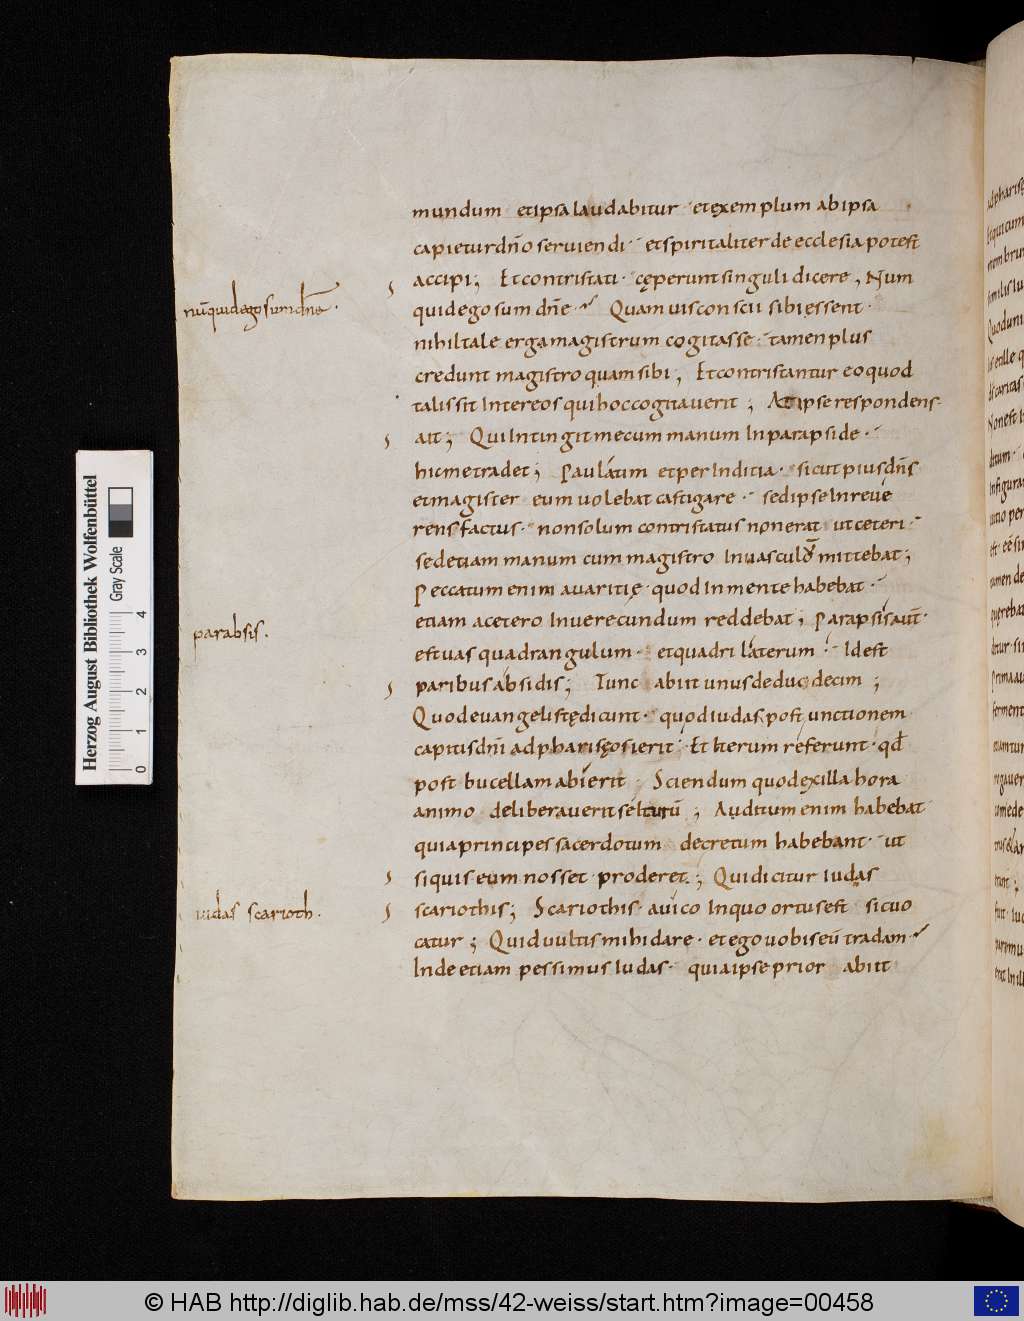 mundum etipsa laudabitur · etexemplum abipsa
capieturdño seruiendi · etspiritaliter de ecclesia potest
accipi; Et contristati · cęperunt singuli dicere, Num
nũquidegosumdñe ·
quid ego sum dñe · Quamuis conscii sibi essent ·
nihil tale erga magistrum cogitasse · tamen plus
credunt magistro quam sibi, Et contristantur eo quod
talis sit inter eos qui hoc cogitauerit; At ipse respondens ·
ait; Qui intingit mecum manum in parapside ·
hic me tradet; Paulátim et per inditia · sicut pius dñs
et magister eum uolebat castigare · sed ipse inreue
rens factus · non solum contristatus non erat ut ceteri ·
sed etiam manum cum magistro in uasculo mittebat;
Peccatum enim auaritię · quod in mente habebat ·
etiam a cetero inuerecundum reddebat; Parapsis aut̃ ·
parabsis ·
est uas quadrangulum · et quadri láterum · Id est
paribus ábsidis; Tunc abiit unus de duodecim;
Quod euangelistę dicunt · quod iudas post unctionem
capitis dñi ad pharisęos ierit · Et iterum réferunt · qđ
post bucellam abíerit Sciendum quod ex illa hora
animo deliberauerit seltturũ; Auditum enim habebat
quia principes sacerdotum decretum habebant · ut
si quis eum nosset proderet ·; Qui dicitur iudas
iudas scarioth ·
scariothis; Scariothis · a uico in quo ortus est sic uo
catur; Quid uultis mihi dare · et ego uobis eũ tradam ·
Inde etiam pessimus iudas · quia ipse prior abiit
Herzog August Bibliothek Wolfenbüttel
Gray Scale
0 1 2 3 4
© HAB http://diglib.hab.de/mss/42-weiss/start.htm?image=00458